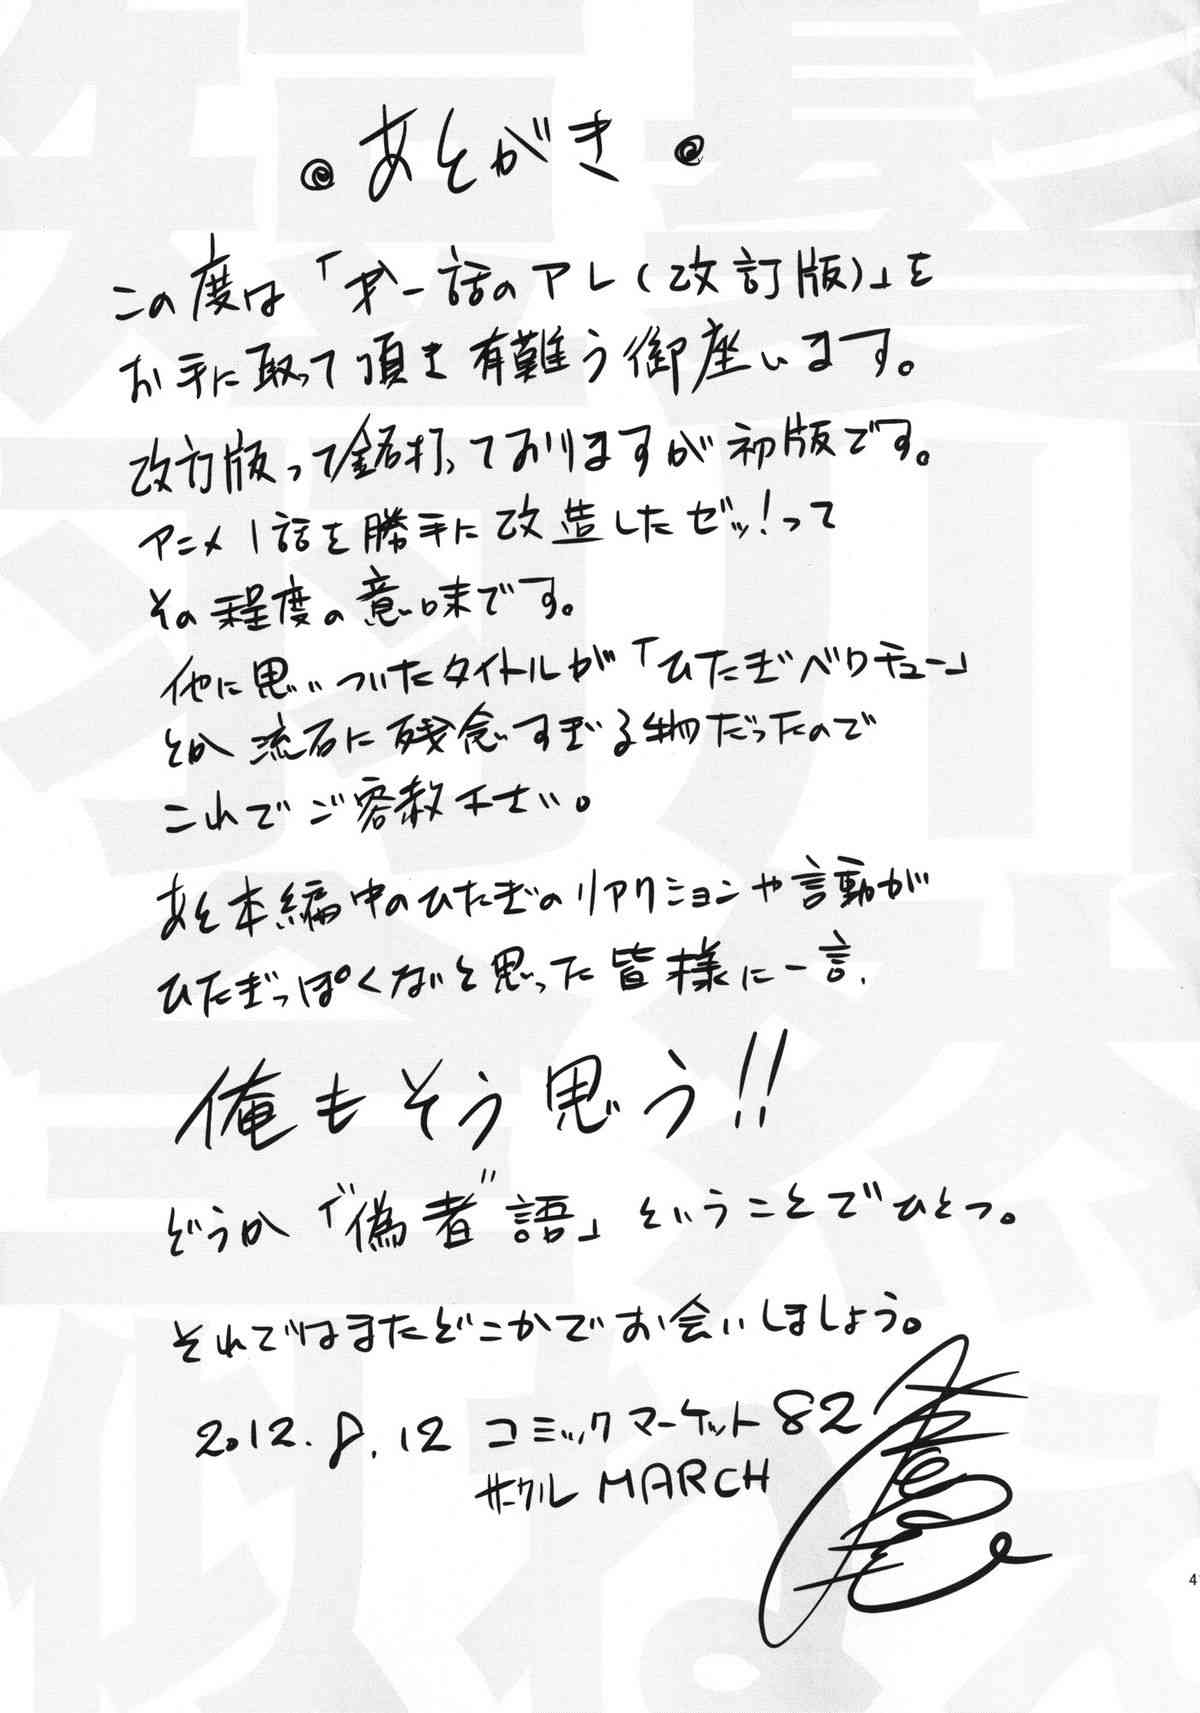 あとがき
この度は「第一話のアレ(改訂版)」を
お手に取って頂き有難う御座います。
改訂版って銘打っておりますが初版です。
アニメ1話を勝手に改造したゼッ!って
その程度の意味です。
他に思いついたタイトルが「ひたぎベクチュー」
とか流石に残念すぎる物だったので
これでご容赦下さい。
あと本編中のひたぎのリアクションや言動が
ひたぎっぽくないと思った皆様に一言、
俺もそう思う!!
どうか「"偽者"語」ということでひとつ。
それではまたどこかでお会いしましょう。
2012.8.12 コミックマーケット82
サークル MARCH